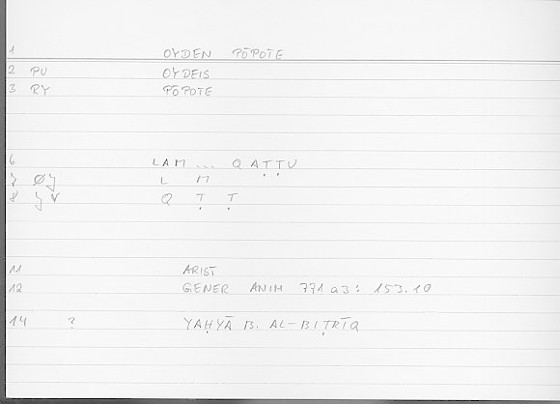 1 OYDEN PŌPOTE
2 PU OYDEIS
3 RY PŌPOTE
6 LAM ... QAṬṬU
7 L M
8 Q Ṭ Ṭ
11 ARIST
12 GENER ANIM 771 a3: 153.10
14 ? YAḤYĀ B. AL-BIṬRĪQ